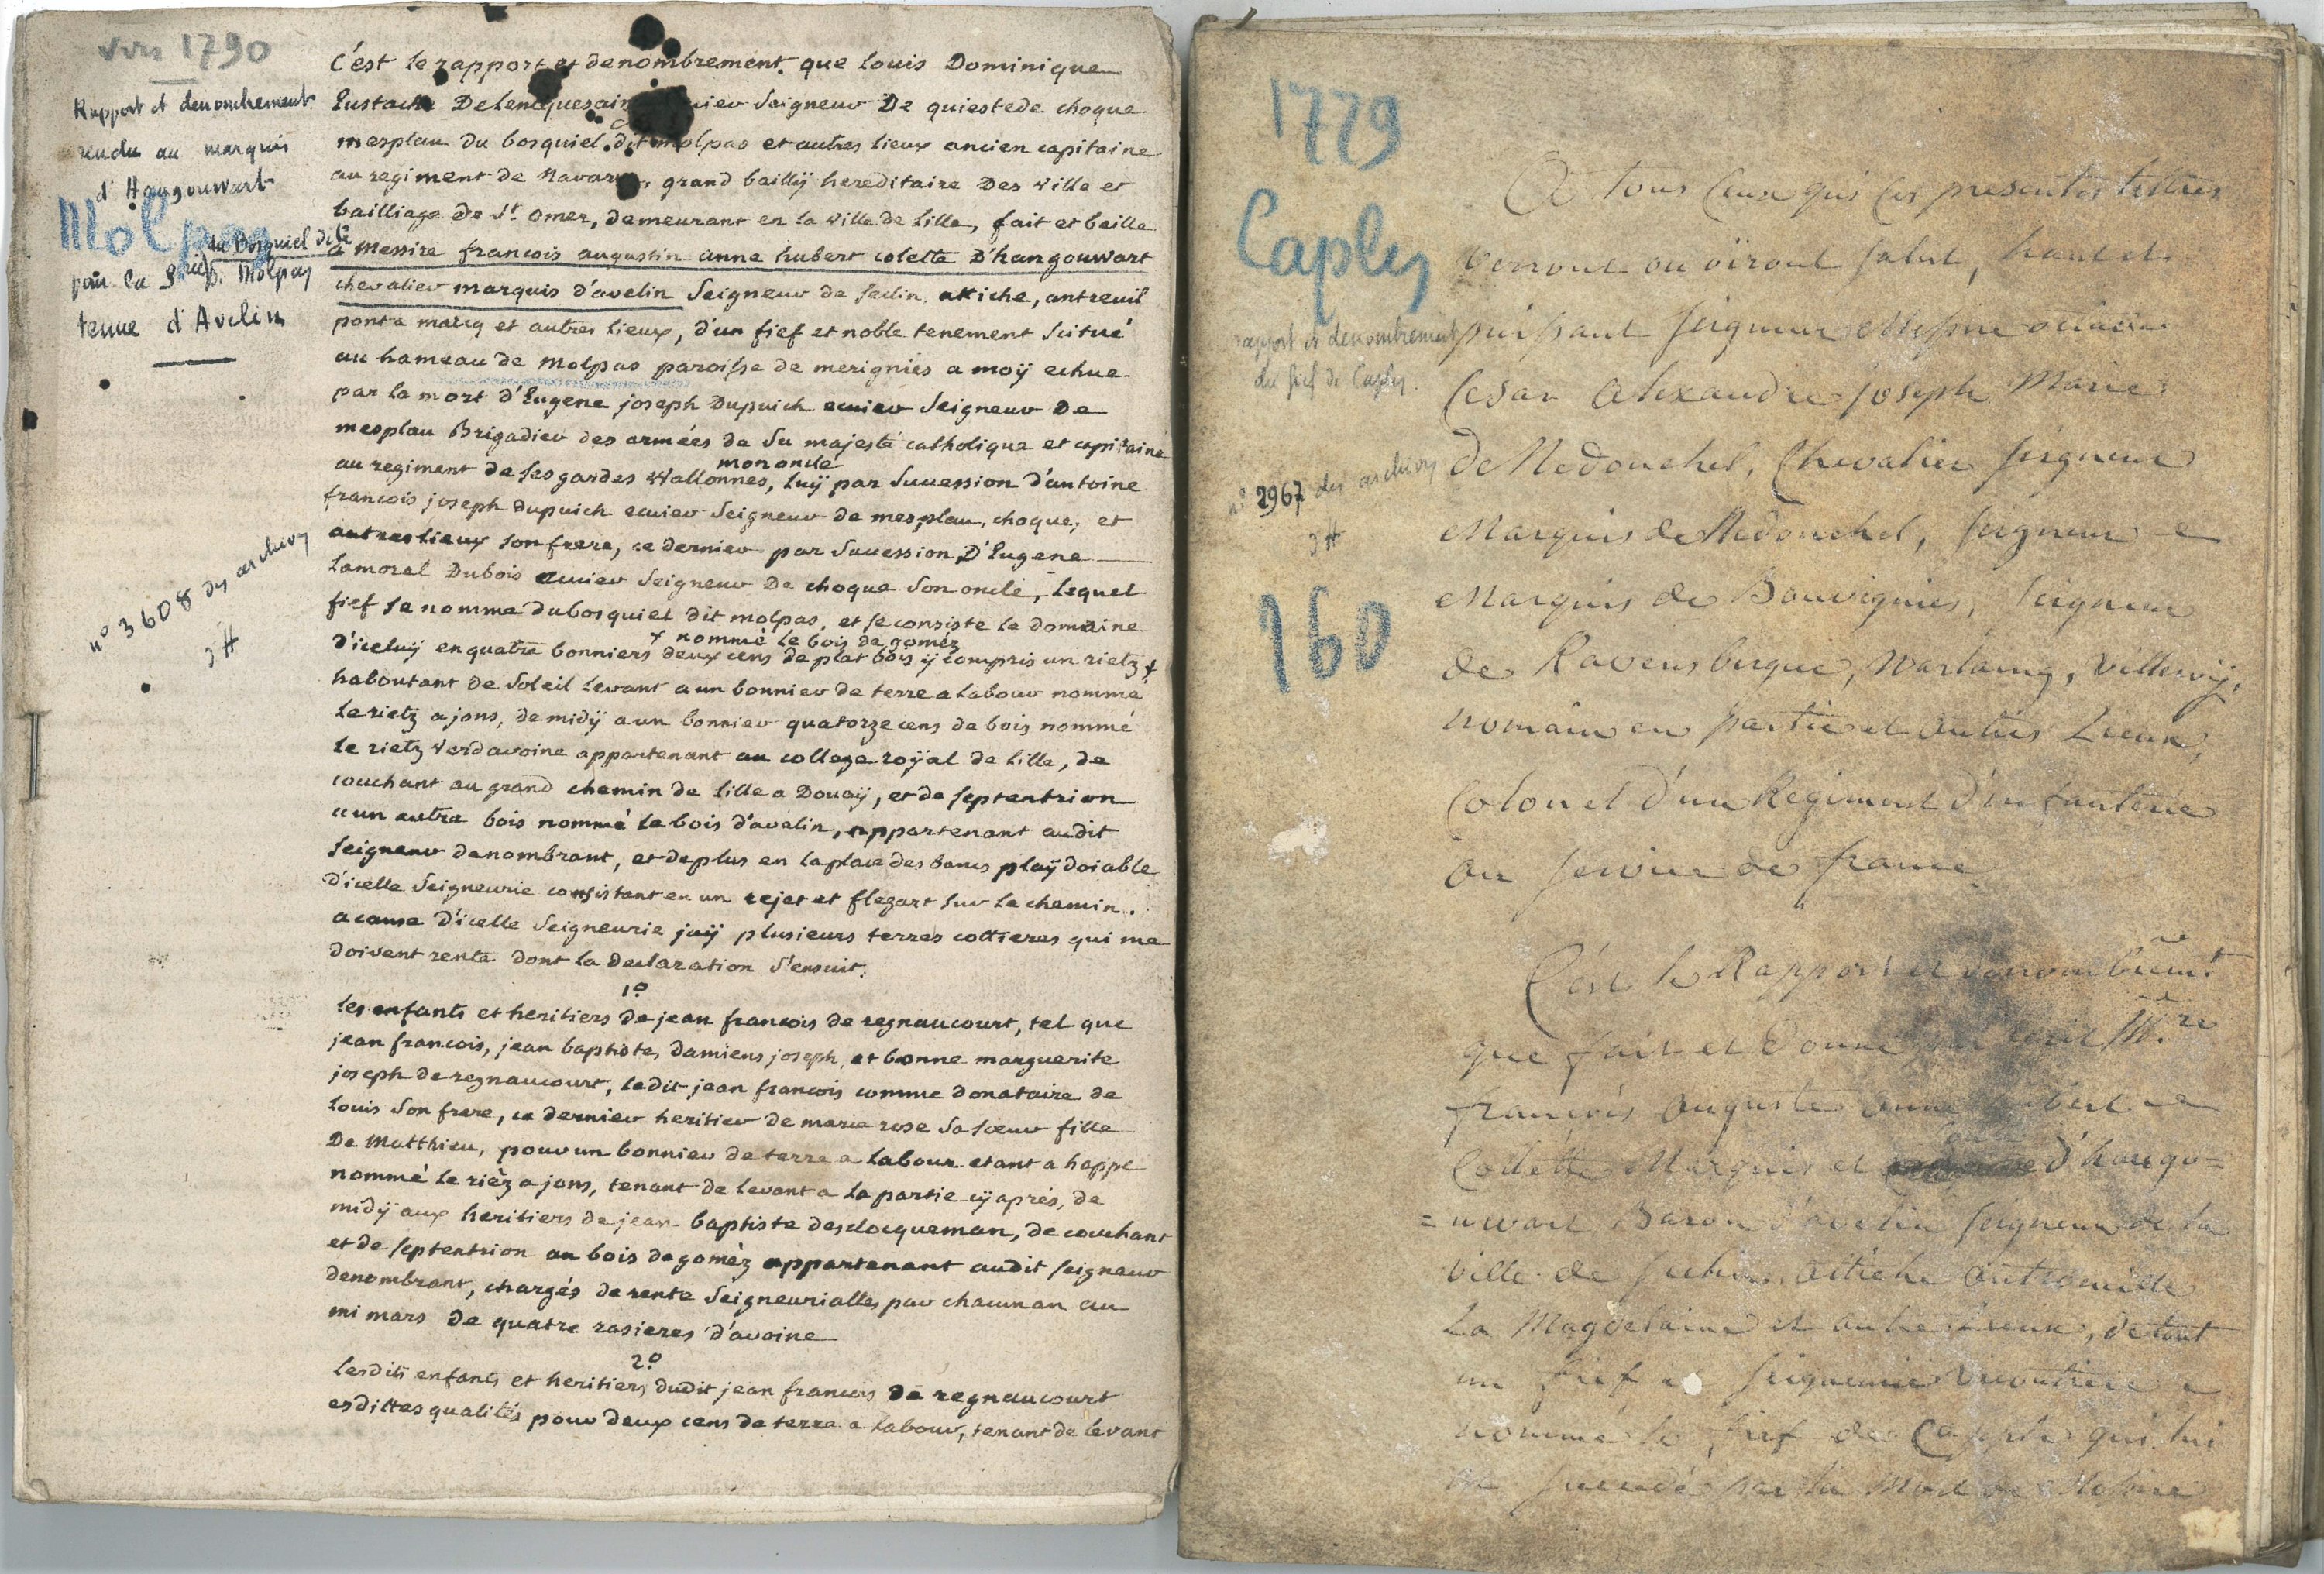 vers 1790
Rapport et denombrement
rendu au marquis
d'Hangouwart
Molpas
du Bosquiel dit
pour la S.rie de Molpas
tenue d'Avelin
n° 3608 des archives
c'est le rapport et denombrement que louis Dominique
Eustache Delencquesaing Seigneur De quiestede choque
mesplau du bosquiel dit molpas et autres lieux ancien capitaine
au regiment de Navarre, grand baillÿ hereditaire Des ville et
bailliage de St. omer, demeurant en la ville de lille, fait et baille
a Messire francois augustin anne hubert colette D'hangouwart
chevalier marquis d'avelin Seigneur de seclin, attiche, antreuil
pont a marcq et autres lieux, d'un fief et noble tenement Scitué
au hameau de Molpas paroisse de merigniés a moÿ echue
par la mort d'Eugene joseph Dupuich ecuier Seigneur De
mesplau Brigadier des armées de Sa majesté catholique et capitaine
mon oncle
au regiment de ses gardes Wallonnes, luÿ par Sucession d'antoine
francois joseph dupuich ecuier Seigneur de mesplau, choque, et
autres lieux son frere, ce dernier par Sucession D'Eugene
Lamoral Dubois ecuier Seigneur De choque Son oncle, Lequel
fief Se nomme dubosquiel dit molpas, et se consiste le domaine
+ nommé le bois de goméz
D'iceluÿ en quatre bonniers deux cens de plat bois ÿ compris un rietz +
haboutant de Soleil Levant a un bonnier de terre a Labour nommé
Le rietz a jons, de midÿ a un bonnier quatorze cens de bois nommé
le rietz verdavoine appartenant au college roÿal de lille, de
couchant au grand chemin de lille a Douaÿ, et de septentrion
a un autre bois nommé le bois d'avelin, appartenant audit
seigneur denombrant, et deplus en la place des bancs plaÿdoiable
d'icelle Seigneurie consistant en un rejet et flegart sur le chemin.
a cause d'icelle Seigneurie jaÿ plusieurs terres cottieres qui me
doivent rente dont la declaration S'ensuit.
1°
les enfants et heritiers de jean francois de regnaucourt, tel que
jean francois, jean baptiste, damiens joseph, et bonne marguerite
joseph de regnaucourt, ledit jean francois comme donataire de
Louis Son frere, ce dernier heritier de marie rose Sa soeur fille
De Matthieu, pour un bonnier de terre a labour etant a happe
nommé le rièz a jons, tenant de levant a la partie cÿ aprés, de
midÿ aux heritiers de jean baptiste desclocqueman, de couchant
et de septentrion au bois de gomèz appartenant audit seigneur
denombrant, chargés de rente Seigneurialles par chacun an au
mi mars de quatre rasieres d'avoine
2°
lesdits enfants et heritiers dudit jean francois de regnaucourt
esdittes qualités pour deux cens de terre a labour, tenant de levant
1779
Caples
rapport et denombrement
du fief de Caples.
n° 2967 des archives
160
A tous Ceux qui Ces presentes lettres
verront ou oiront salut, haut et
puissant Seigneur Messire
Cesar Alexandre joseph Marie
de Nedonchel, Chevalier seigneur
Marquis de Nedonchel, seigneur
Marquis de Bouvignies, seigneur
de Ravensbergue, Warlaing,
nomain en partie et autres Lieux,
Colonel d'un Regiment d'infanterie
au service de france
C'est le Rapport et
que fait et Donne M.re
françois auguste anne hubert
Collette Marquis et d'hango=
=uwart Baron d'avelin seigneur de la
ville de seclin attiche
La Magdelaine et autres Lieux, de tout
un fief et seigneurie vicomtiere
nommé le fief de Caple qui lui
par la Mort de Messire